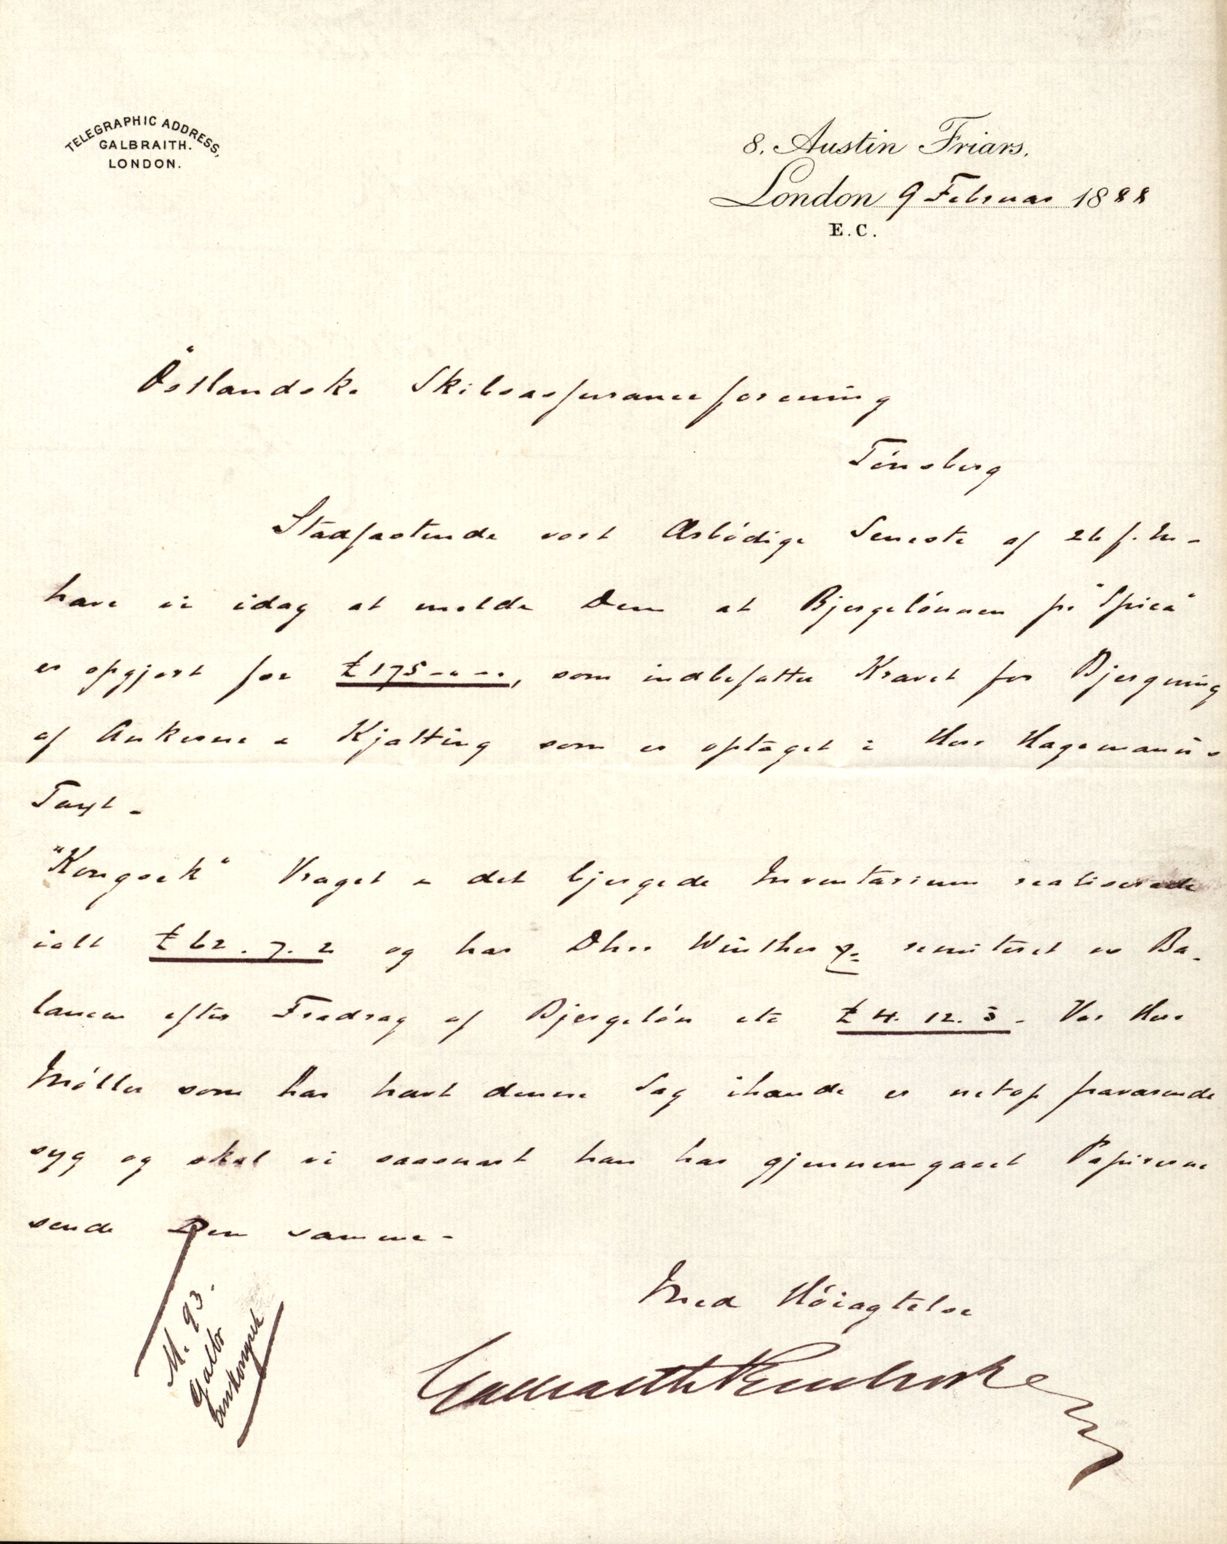 TELEGRAPHIC ADDRESS,
GALBRAITH.
LONDON.
8. Austin Friars.
London 9 Februar 1888
E.C.
Östlandske Skibsassuranceforening
Tönsberg
Stadfæstende vort Ærbödige Seneste af 26 f. M -
have vi idag at melde Dem at Bjergelönnen pr "Spica"
er opgjort for £175 -"- -", som indbefatter Kravet for Bjergning
af Ankerne & Kjætting som er optaget i Herr Hagemann's
Taxt -
"Kongsek" Vraget & det bjergede Inventarium realiserede
ialt £62.7.2 og har Dhrr Winther remitteret os Ba-
lancen efter Fradrag af Bjergelön etc £4.12.3 - Vor Herr
Möller som har havt denne Sag ihænde er netop fraværende
syg og skal vi saasnart han har gjennemgaaet Papirerne
sende Dem samme -
Med Höiagtelse
Galbraith Pembroke
M. 93.
Galbr